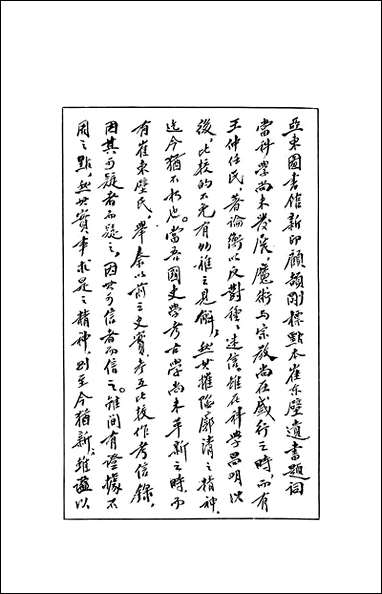 亞東圖書館新印顧頡剛標點本崔東壁遺書題詞
當科學尚未發展，魔術与宗教尚在盛行之時，而有
王仲任氏，著論衡以反對種〻迷信。雖在科學昌明以
後，比校的不免有幼稚之見解，然其摧陷廓清之精神，
迄今猶不朽也。當吾國史學考古學尚未革新之時，而
有崔東壁氏，舉秦以前之史實，參互比校作考信錄，
因其可疑者而疑之，因其可信者而信之。雖間有證據不
周之點，然其實事求是之精神，則至今猶新，雖謚以